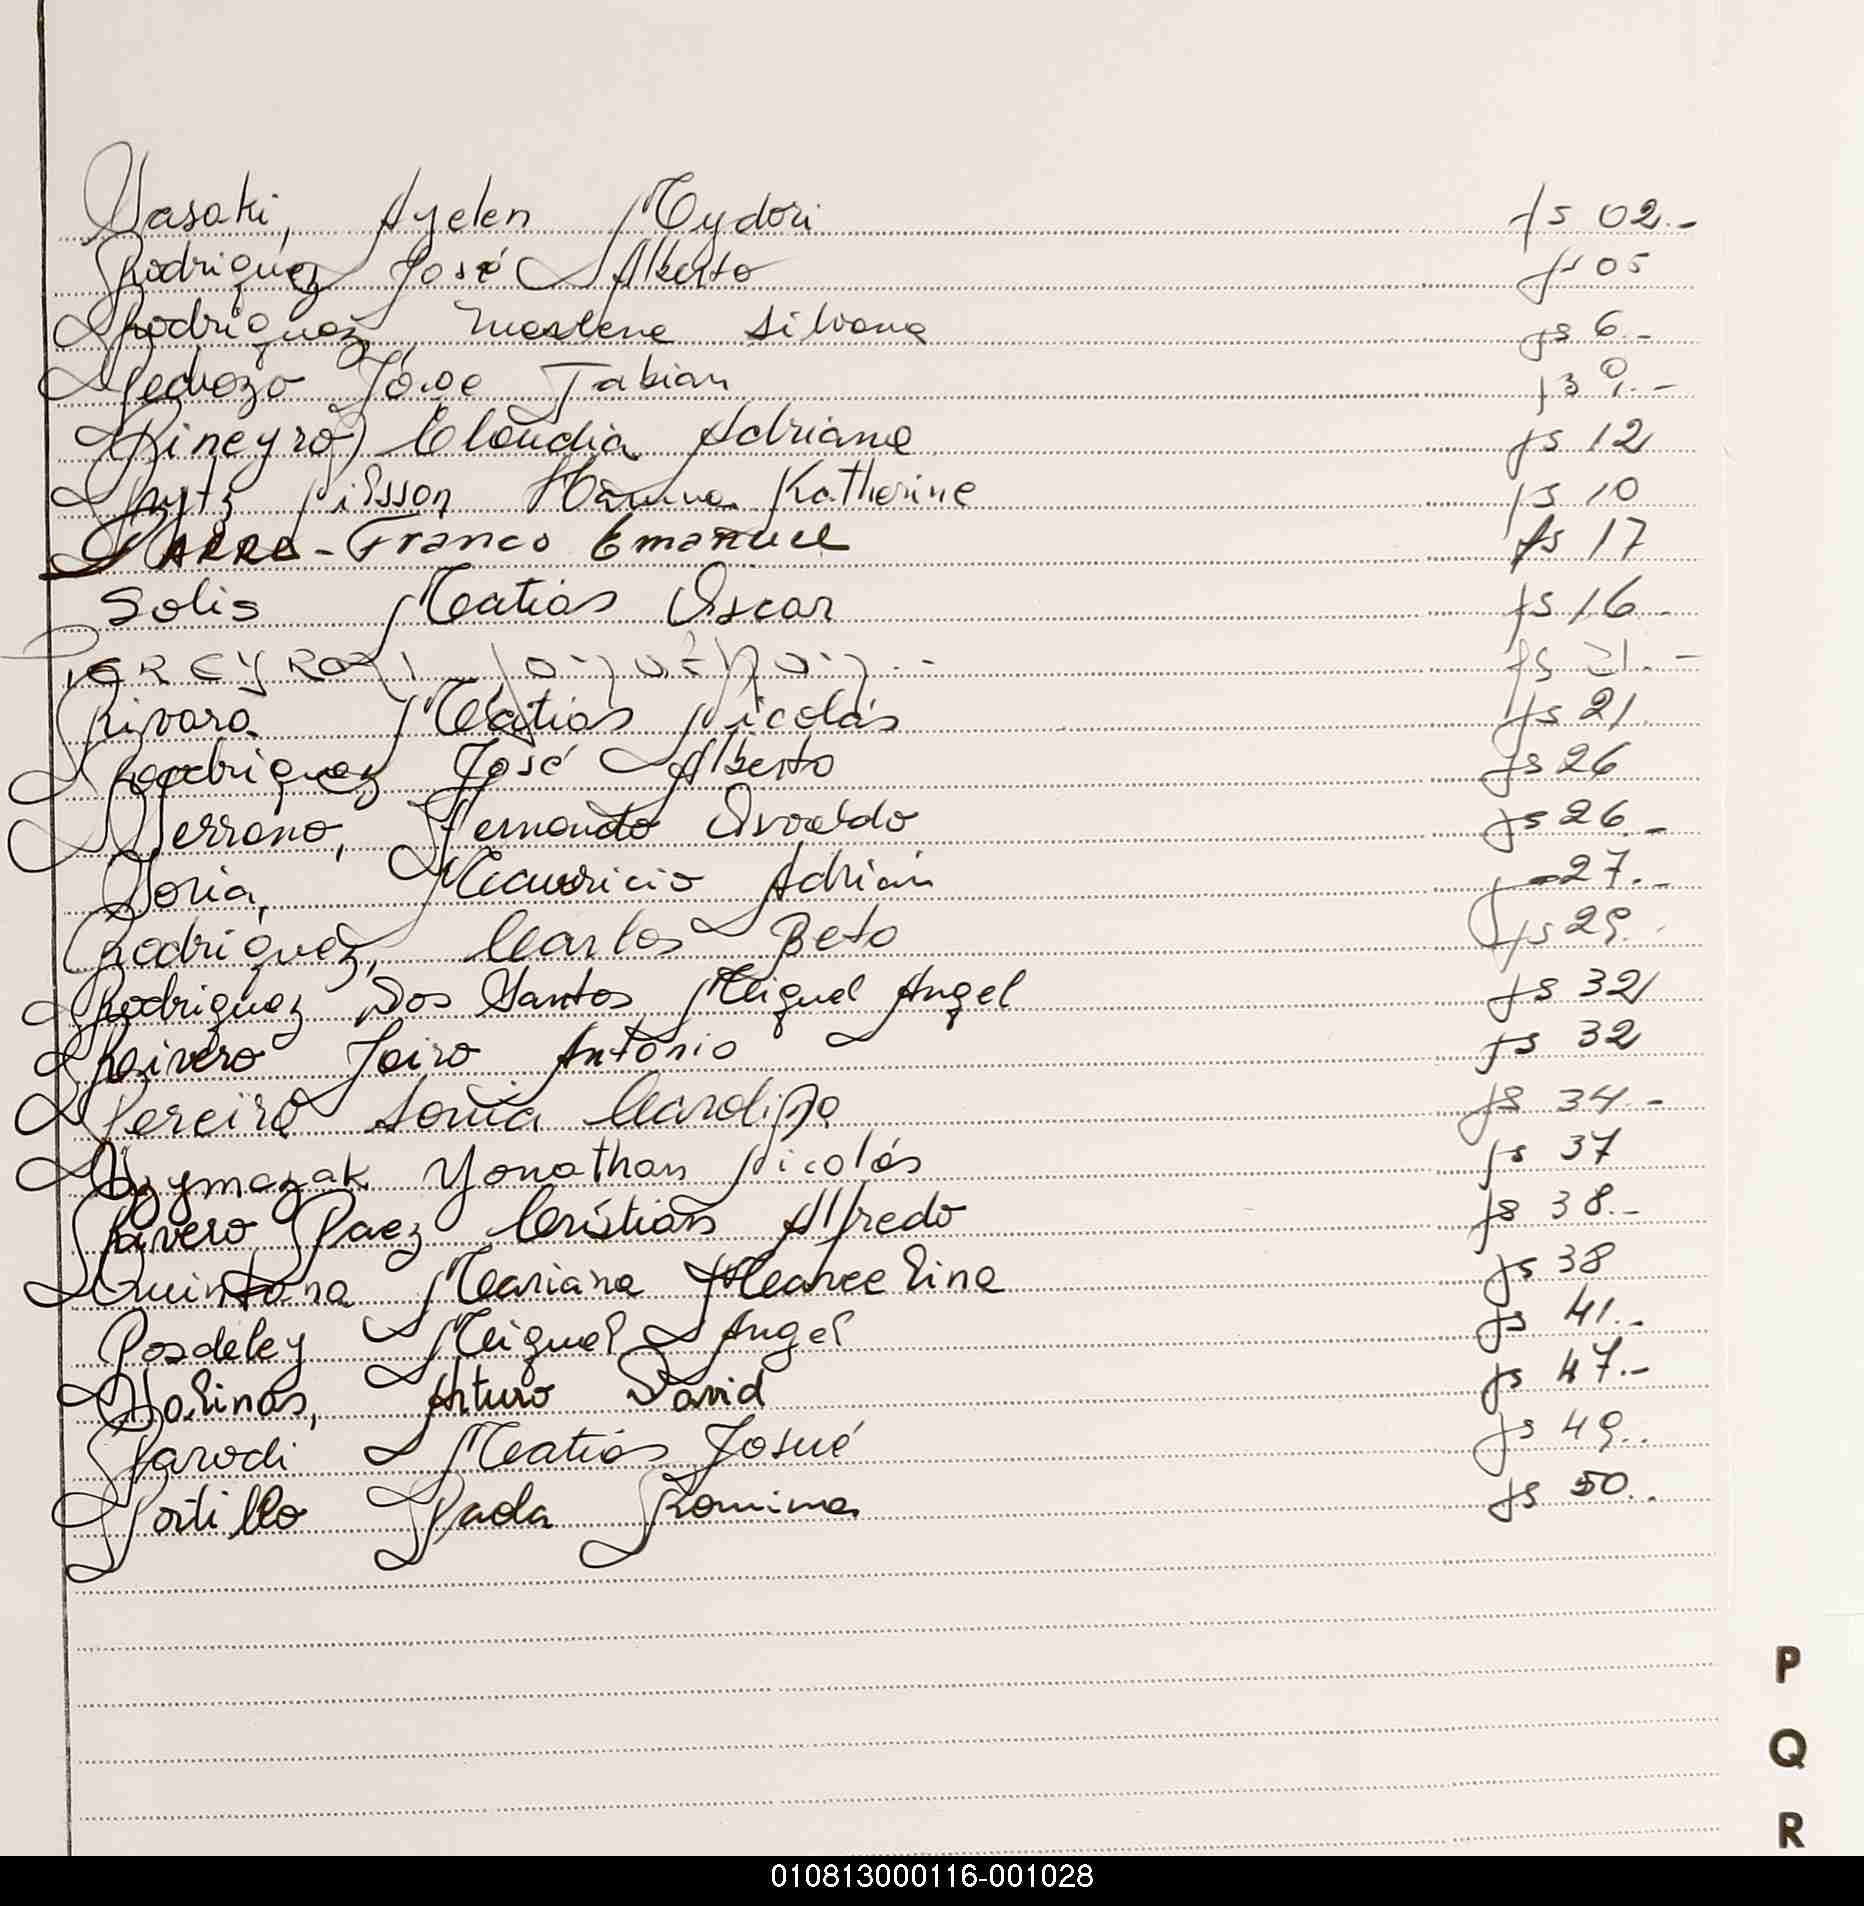 Sasaki, Ayelen Mydori fs 02.-
Rodriguez José Alberto fs 05
Rodriguez Marlene Silvana fs 6.-
Pedrozo Jorge Fabian fs 9.-
Pineyro Claudia Adriana fs 12
Hanna Katherine fs 10
PARRA - Franco Emanuel fs 17
Solis Matias Oscar fs 16.
fs 21.-
Rivara Matias Nicolás fs 21.
Rodriguez José Alberto fs 26
Serrano, Fernando Osvaldo fs 26.-
Soria, Mauricio Adrián 27.-
Rodriguez, Carlos Beto fs 29.
Rodriguez Dos Santos Miguel Angel fs 32
Rivero Jairo Antonio fs 32
Pereira Sonia Carolina fs 34.-
Szymczak Yonathan Nicolás fs 37
Rivero Paez Cristian Alfredo fs 38.-
Quintana Mariana Marcelina fs 38
Posdeley Miguel Angel fs 41.-
Salinas, Arturo David fs 47.-
Parodi Matias Josué fs 49..
Portillo Paola Romina fs 50..
P
Q
R
010813000116-001028